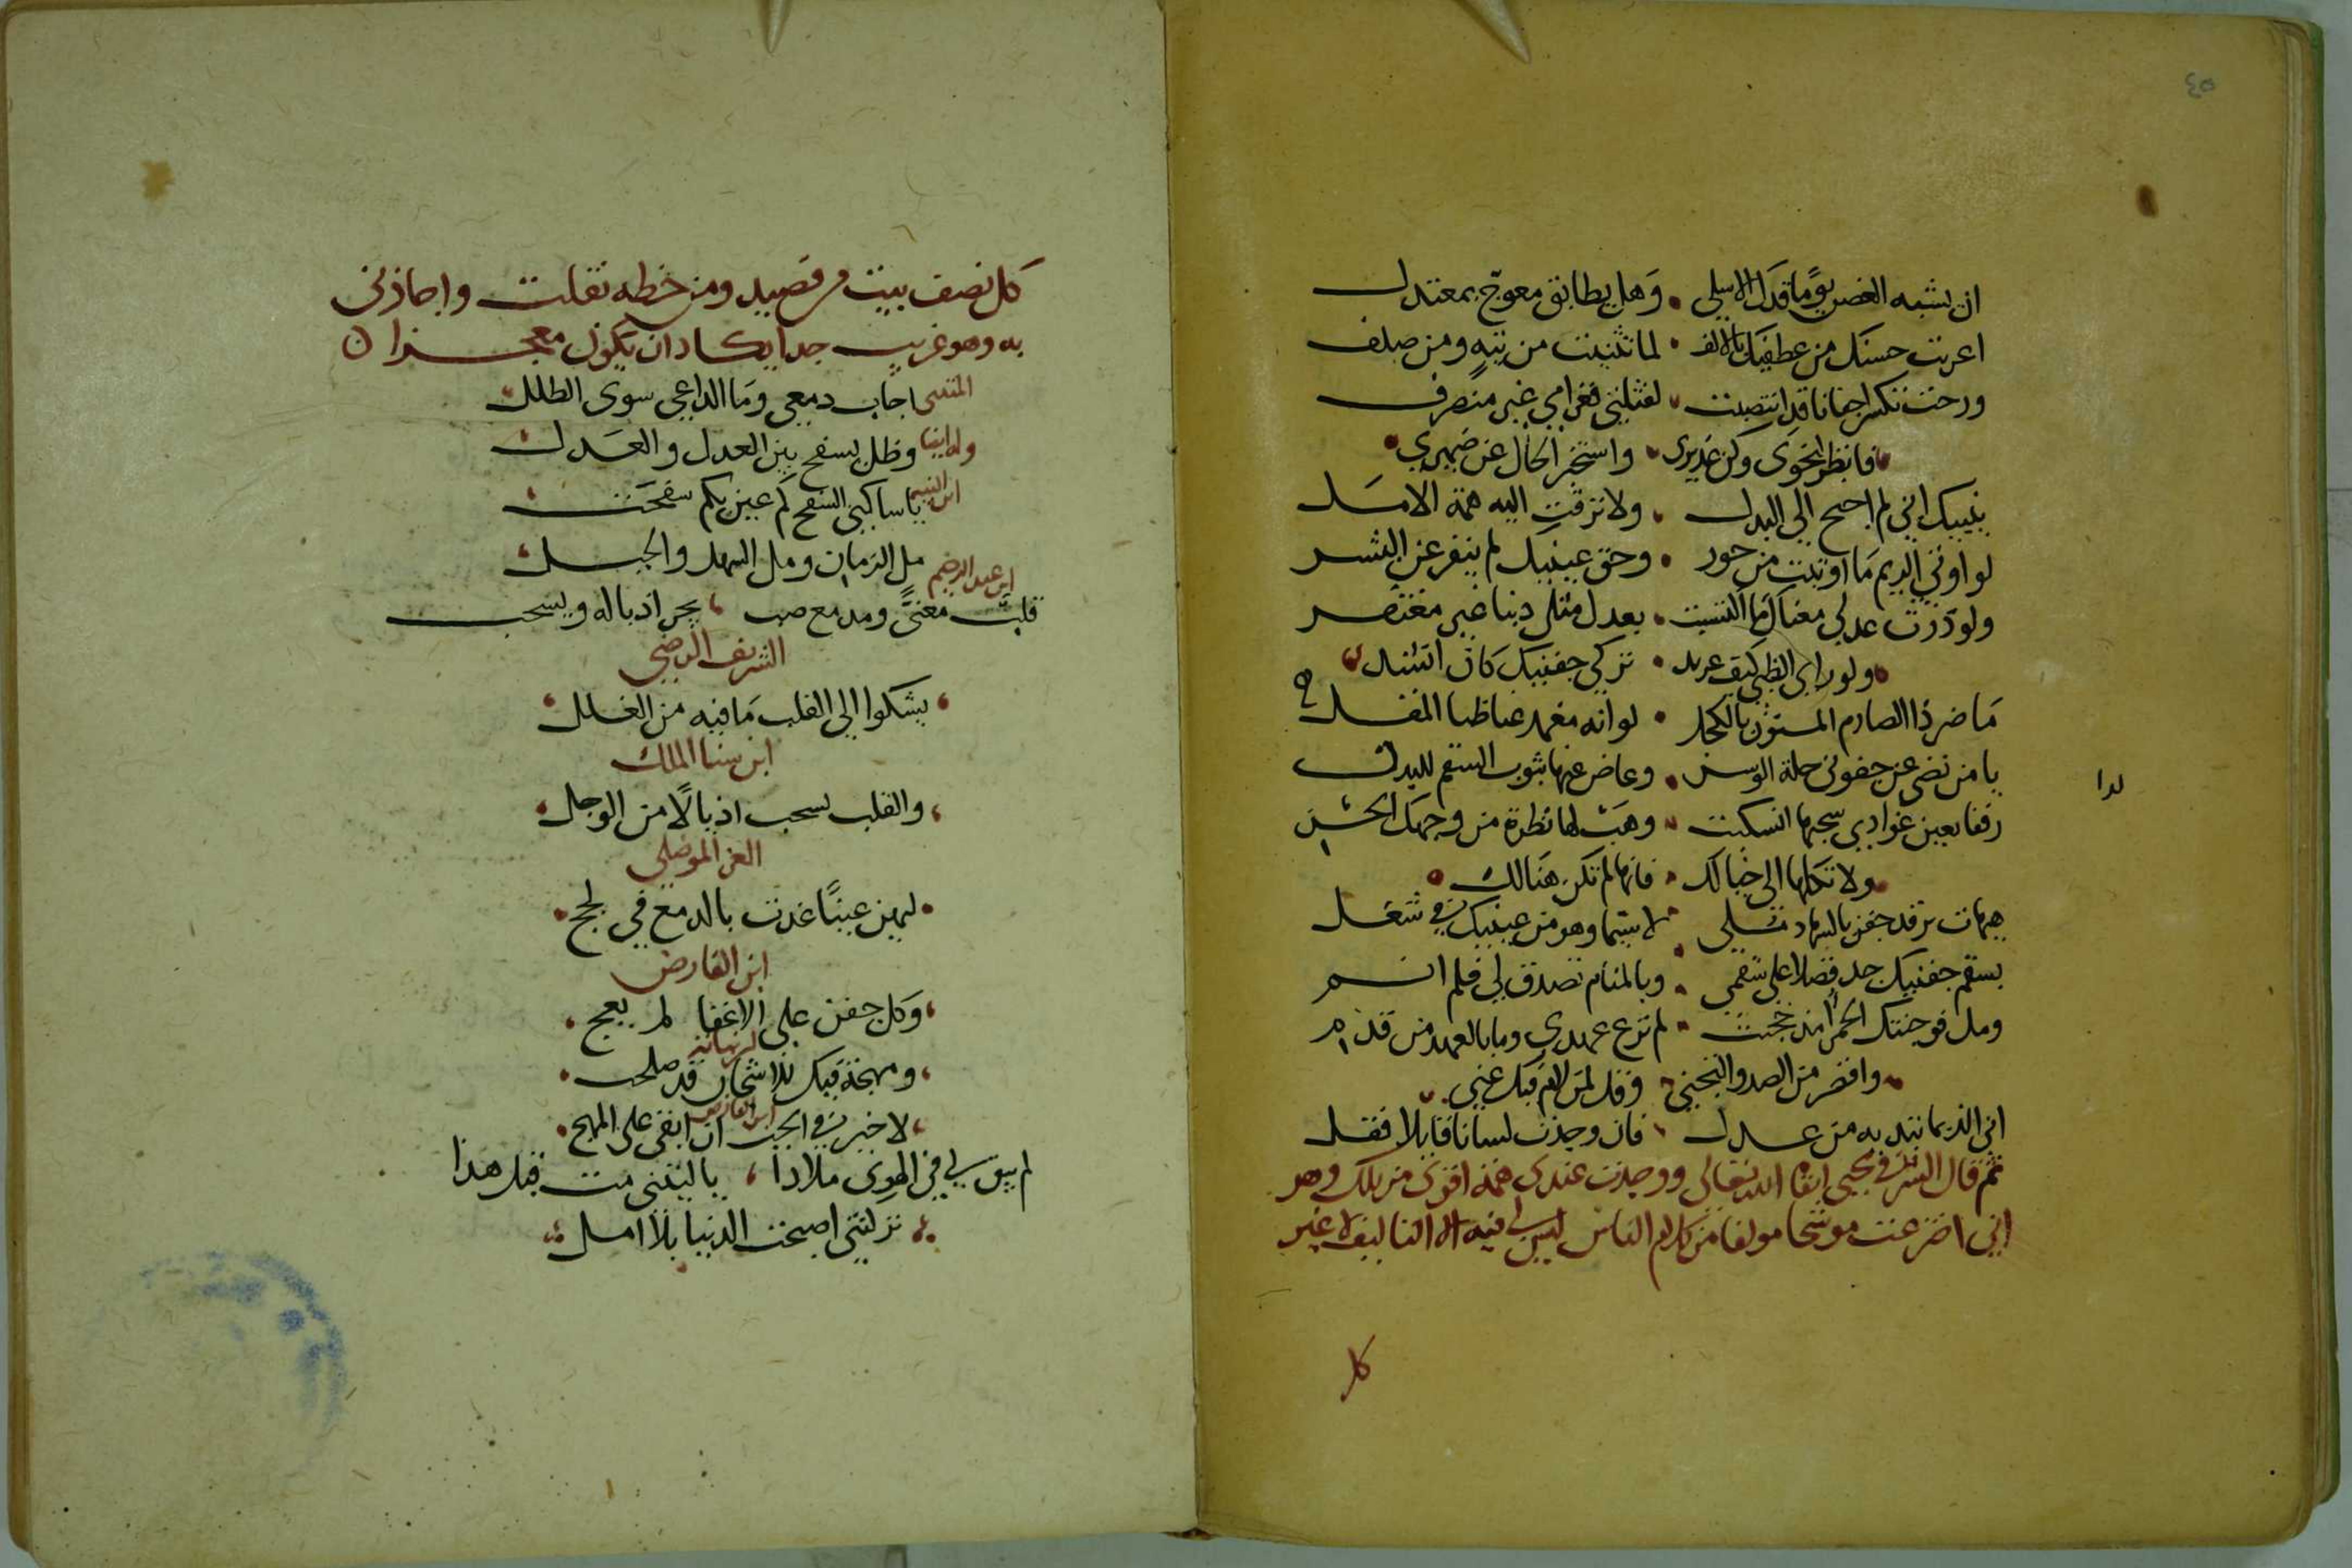 ٤٥
ان يشبه الغصن يومًا قدك الاسلي • وهل يطابق معوجّ بمعتدل
اعربت حسنك من عطفيك بالالف • لما تثنيت من تيهٍ ومن صلف
ورحت تكسر اجفانا قد انتصبت • لقتلتي فغرامي غير منصرف
فانظر لنحوي وكن عذيري • واستخبر الحال عن ضميري
بغيبك اني لم اجنح الي البدل • ولا ترقت اليه همة الامل
لو اوتي الريم ما اوتيت من حور • وحق عينيك لم ينفر عن البشر
ولو درت عدلي معناك ما التبست • بعدل مثلي دينا غير مغتفر
ولو راى الظبي كيف عربد • تركي جفنيك كان اسند
ما ضر ذا الصارم المسنون بالكحل • لو انه مغمد عنا ظبا المقل
يا من نضى عن جفوني حلة الوسن • وعاض عنها بثوب السقم للبدن
لدا
رفقا بعين غوادي سحبها انسكبت • وهب لها نظرة من وجهك الحسن
ولا تكلها الى خيالك • فانها لم تكن هنالك
هيهات ترقد جفن بالسهاد تلي • لا سيما وهو من عينيك في شغل
بسقم جفنيك جد فضلا على سقمي • وبالمنام تصدق لي فلم انم
ومل فوجنتك الحمرا مذ حجبت • لم ترع عهدي وما بالعهد من قدم
واقصر من الصد والتجني • وقل لمن لام فيك عني
اني الذي ما نتد به من عدل • فان وجدت لسانا قايلا فقل
ثم قال الشرفي يحيى ابقاه الله تعالى ووجدت عندي همة اقوى من تلك وهو
اني اخترعت موشحا مولفا من كلام الناس ليس لي فيه الا التاليف لا غير
كل
كل نصف بيت من قصيد ومن خطه نقلت واجازني
به وهو غريب جدا يكاد ان يكون معجزا
المتنبي اجاب دمعي وما الداعي سوى الطلل
وله ايضا وظل يسفح بين العدل والعدل
ابن النبيه يا ساكني السفح كم عين بكم سفحت
مل الزمان ومل السهل والجبل
ابن عبد الرحيم
قلب معنىً ومدمع صب ، يجر اذياله ويسحب
الشريف الرضي
يشكوا الي القلب ما فيه من الغلل
ابن سنا الملك
والقلب يسحب اذيالًا من الوجل
العز الموصلي
ليهن عينًا غدت بالدمع في لجج
ابن الفارض
وكل جفن على الاغفا لم يعج
ومهجة فيك للاشجان قد صلحت
ابن الفارض
لا خير في الحب ان ابقى على المهج
لم يبق لي في الهوى ملاذا ، يا ليتني مت قبل هذا
تركتني اصحب الدنيا بلا امل